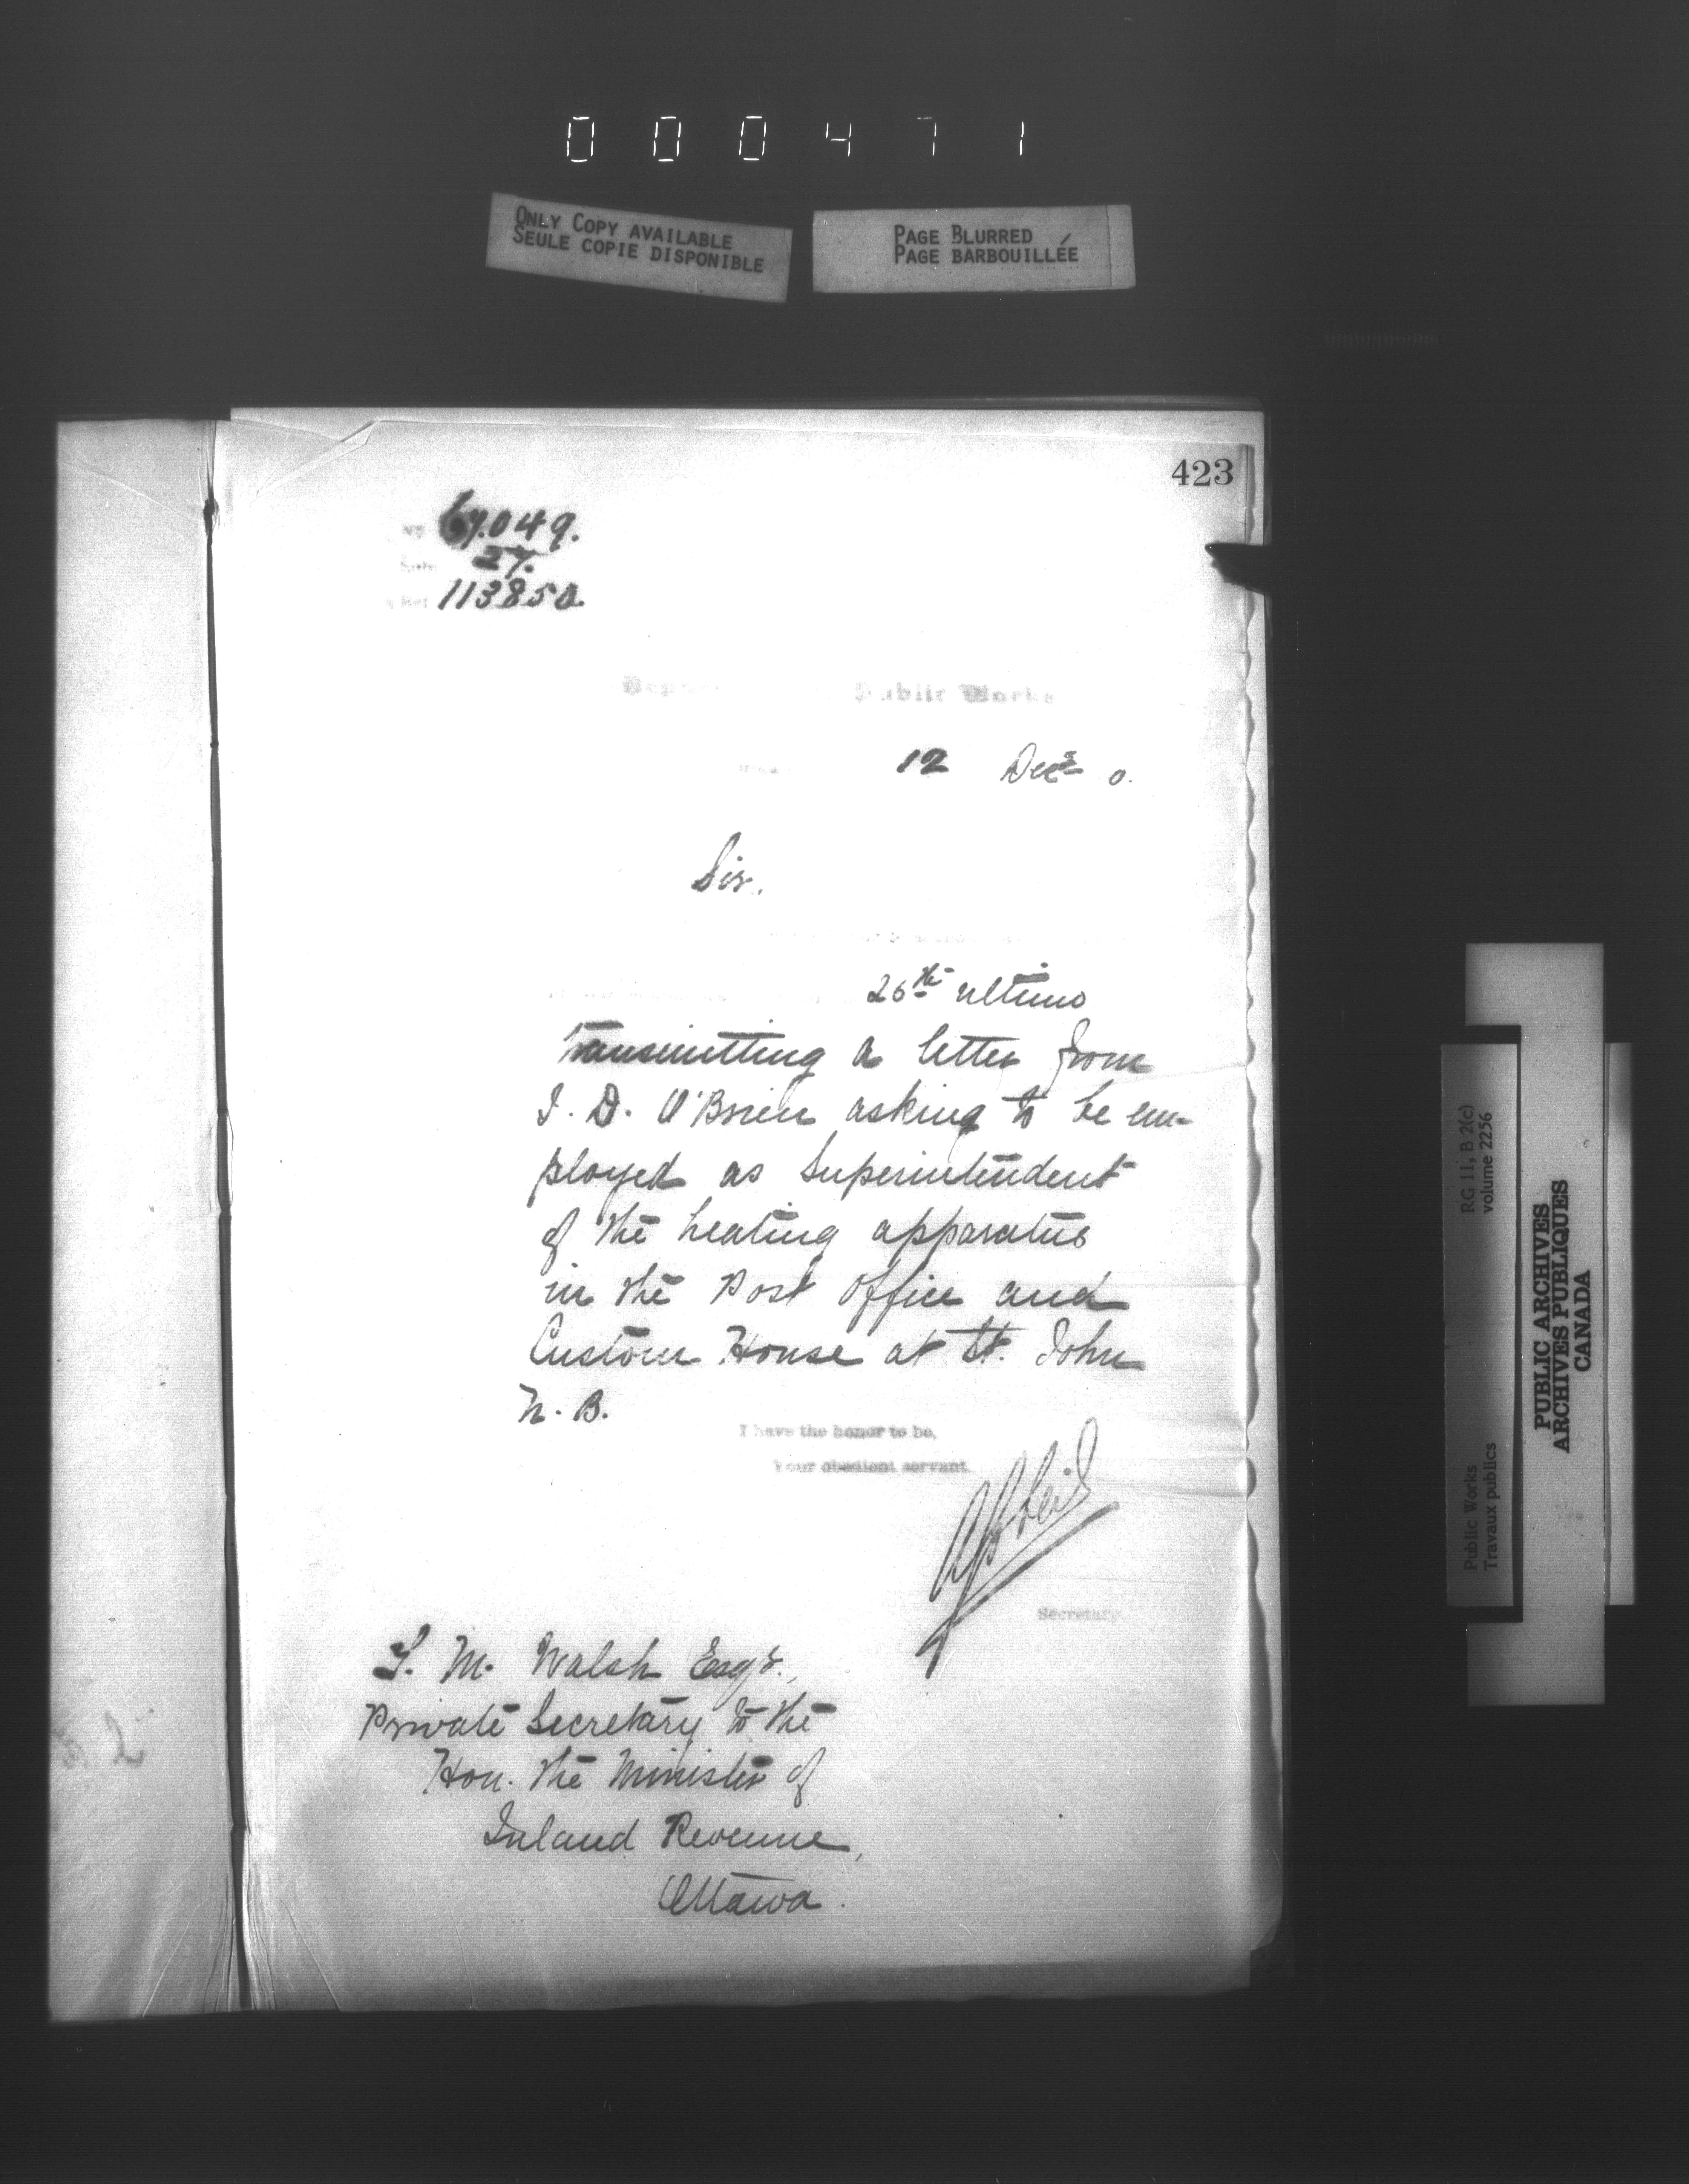 000471
ONLY COPY AVAILABLE
SEULE COPIE DISPONIBLE
PAGE BLURRED
PAGE BARBOUILLÉE
423
67.049.
Subj 27.
Ref 113850.
Public Works
12 Dec 0.
Sir.
26th ultimo
transmitting a letter from
J. D. O'Brien asking to be em-
ployed as Superintendent
of the heating apparatus
in the Post Office and
Custom House at St. John
N. B.
I have the honor to be,
Your obedient servant
Secretary.
Walsh Esqr.,
Private Secretary to the
Hon. the Minister of
Inland Revenue,
Ottawa.
RG 11, B 2(c)
volume 2256
Public Works
Travaux publics
PUBLIC ARCHIVES
ARCHIVES PUBLIQUES
CANADA